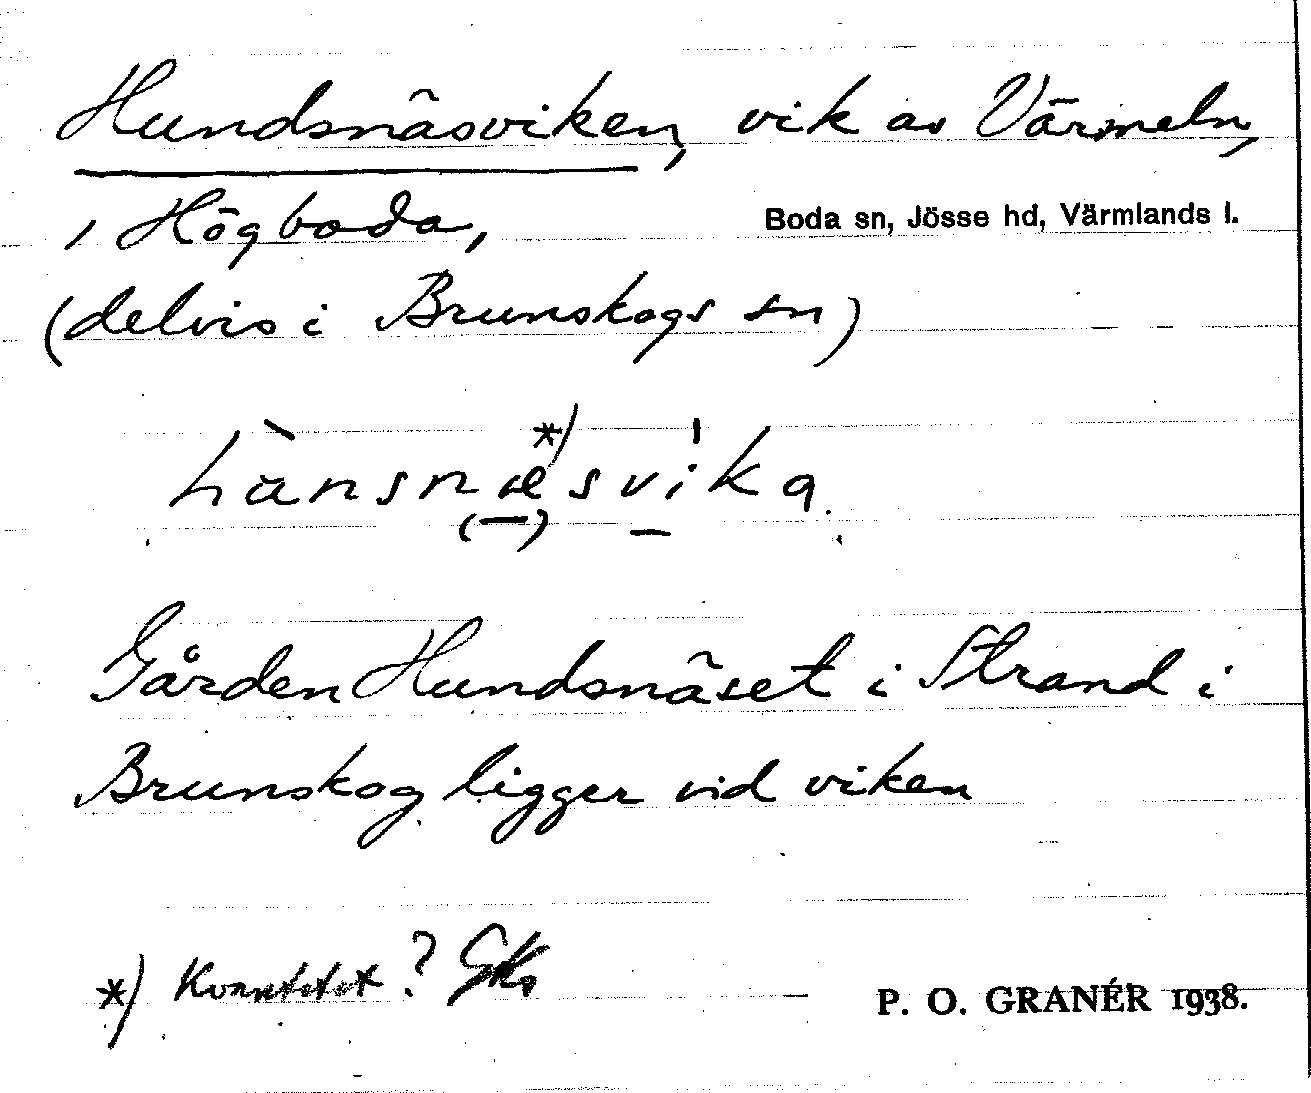 Hundsnäsviken, vik av Värmeln,
i Högboda,
Boda sn, Jösse hd, Värmlands l.
(delvis i Brunskogs sn)
hànsnæ*)svika
Gården Hundsnäset i Strand i
Brunskog ligger vid viken
*) Kvantitet?
P. O. GRANÉR 1938.